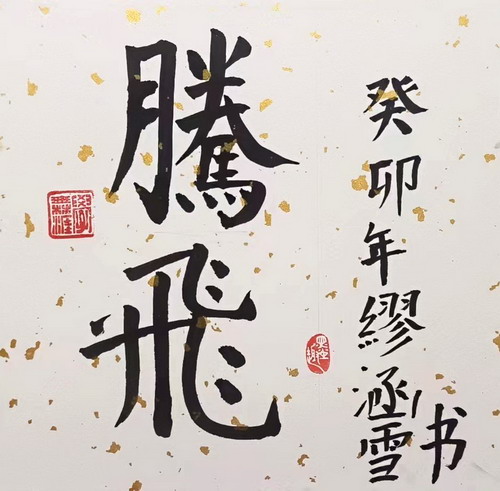 騰飛
癸卯年繆涵雪书